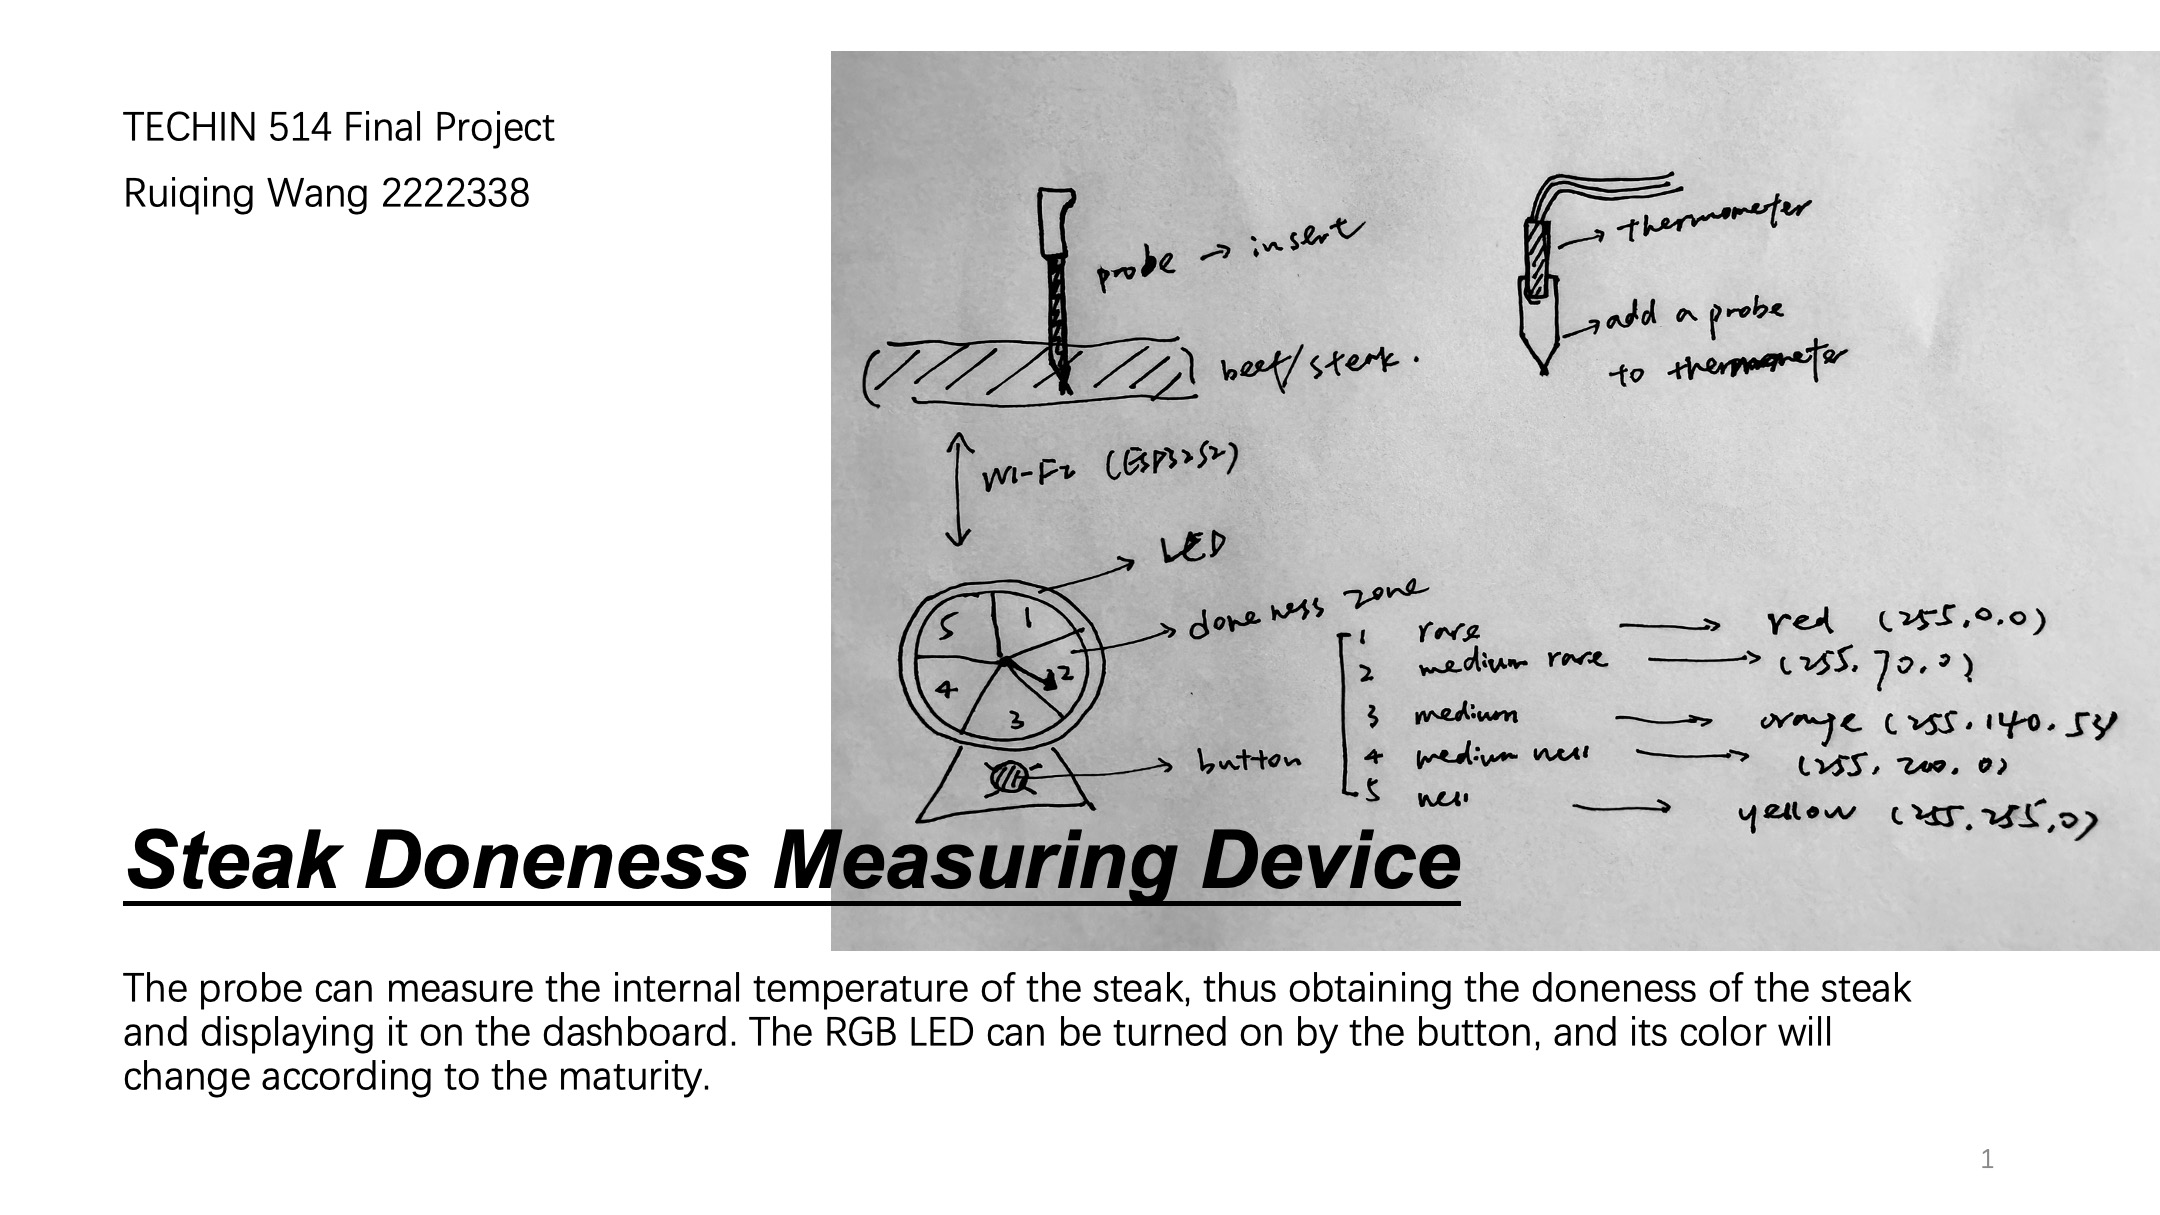 TECHIN 514 Final Project
Ruiqing Wang 2222338
probe → insert
beef/steak.
thermometer
add a probe
to thermometer
WI-FI (ESP32S2)
LED
doneness zone
5
1
2
4
3
button
1 rare → red (255,0,0)
2 medium rare → (255,70,0)
3 medium → orange (255,140,53)
4 medium → (255,200,0)
5 → yellow (255,255,0)
Steak Doneness Measuring Device
The probe can measure the internal temperature of the steak, thus obtaining the doneness of the steak
and displaying it on the dashboard. The RGB LED can be turned on by the button, and its color will
change according to the maturity.
1